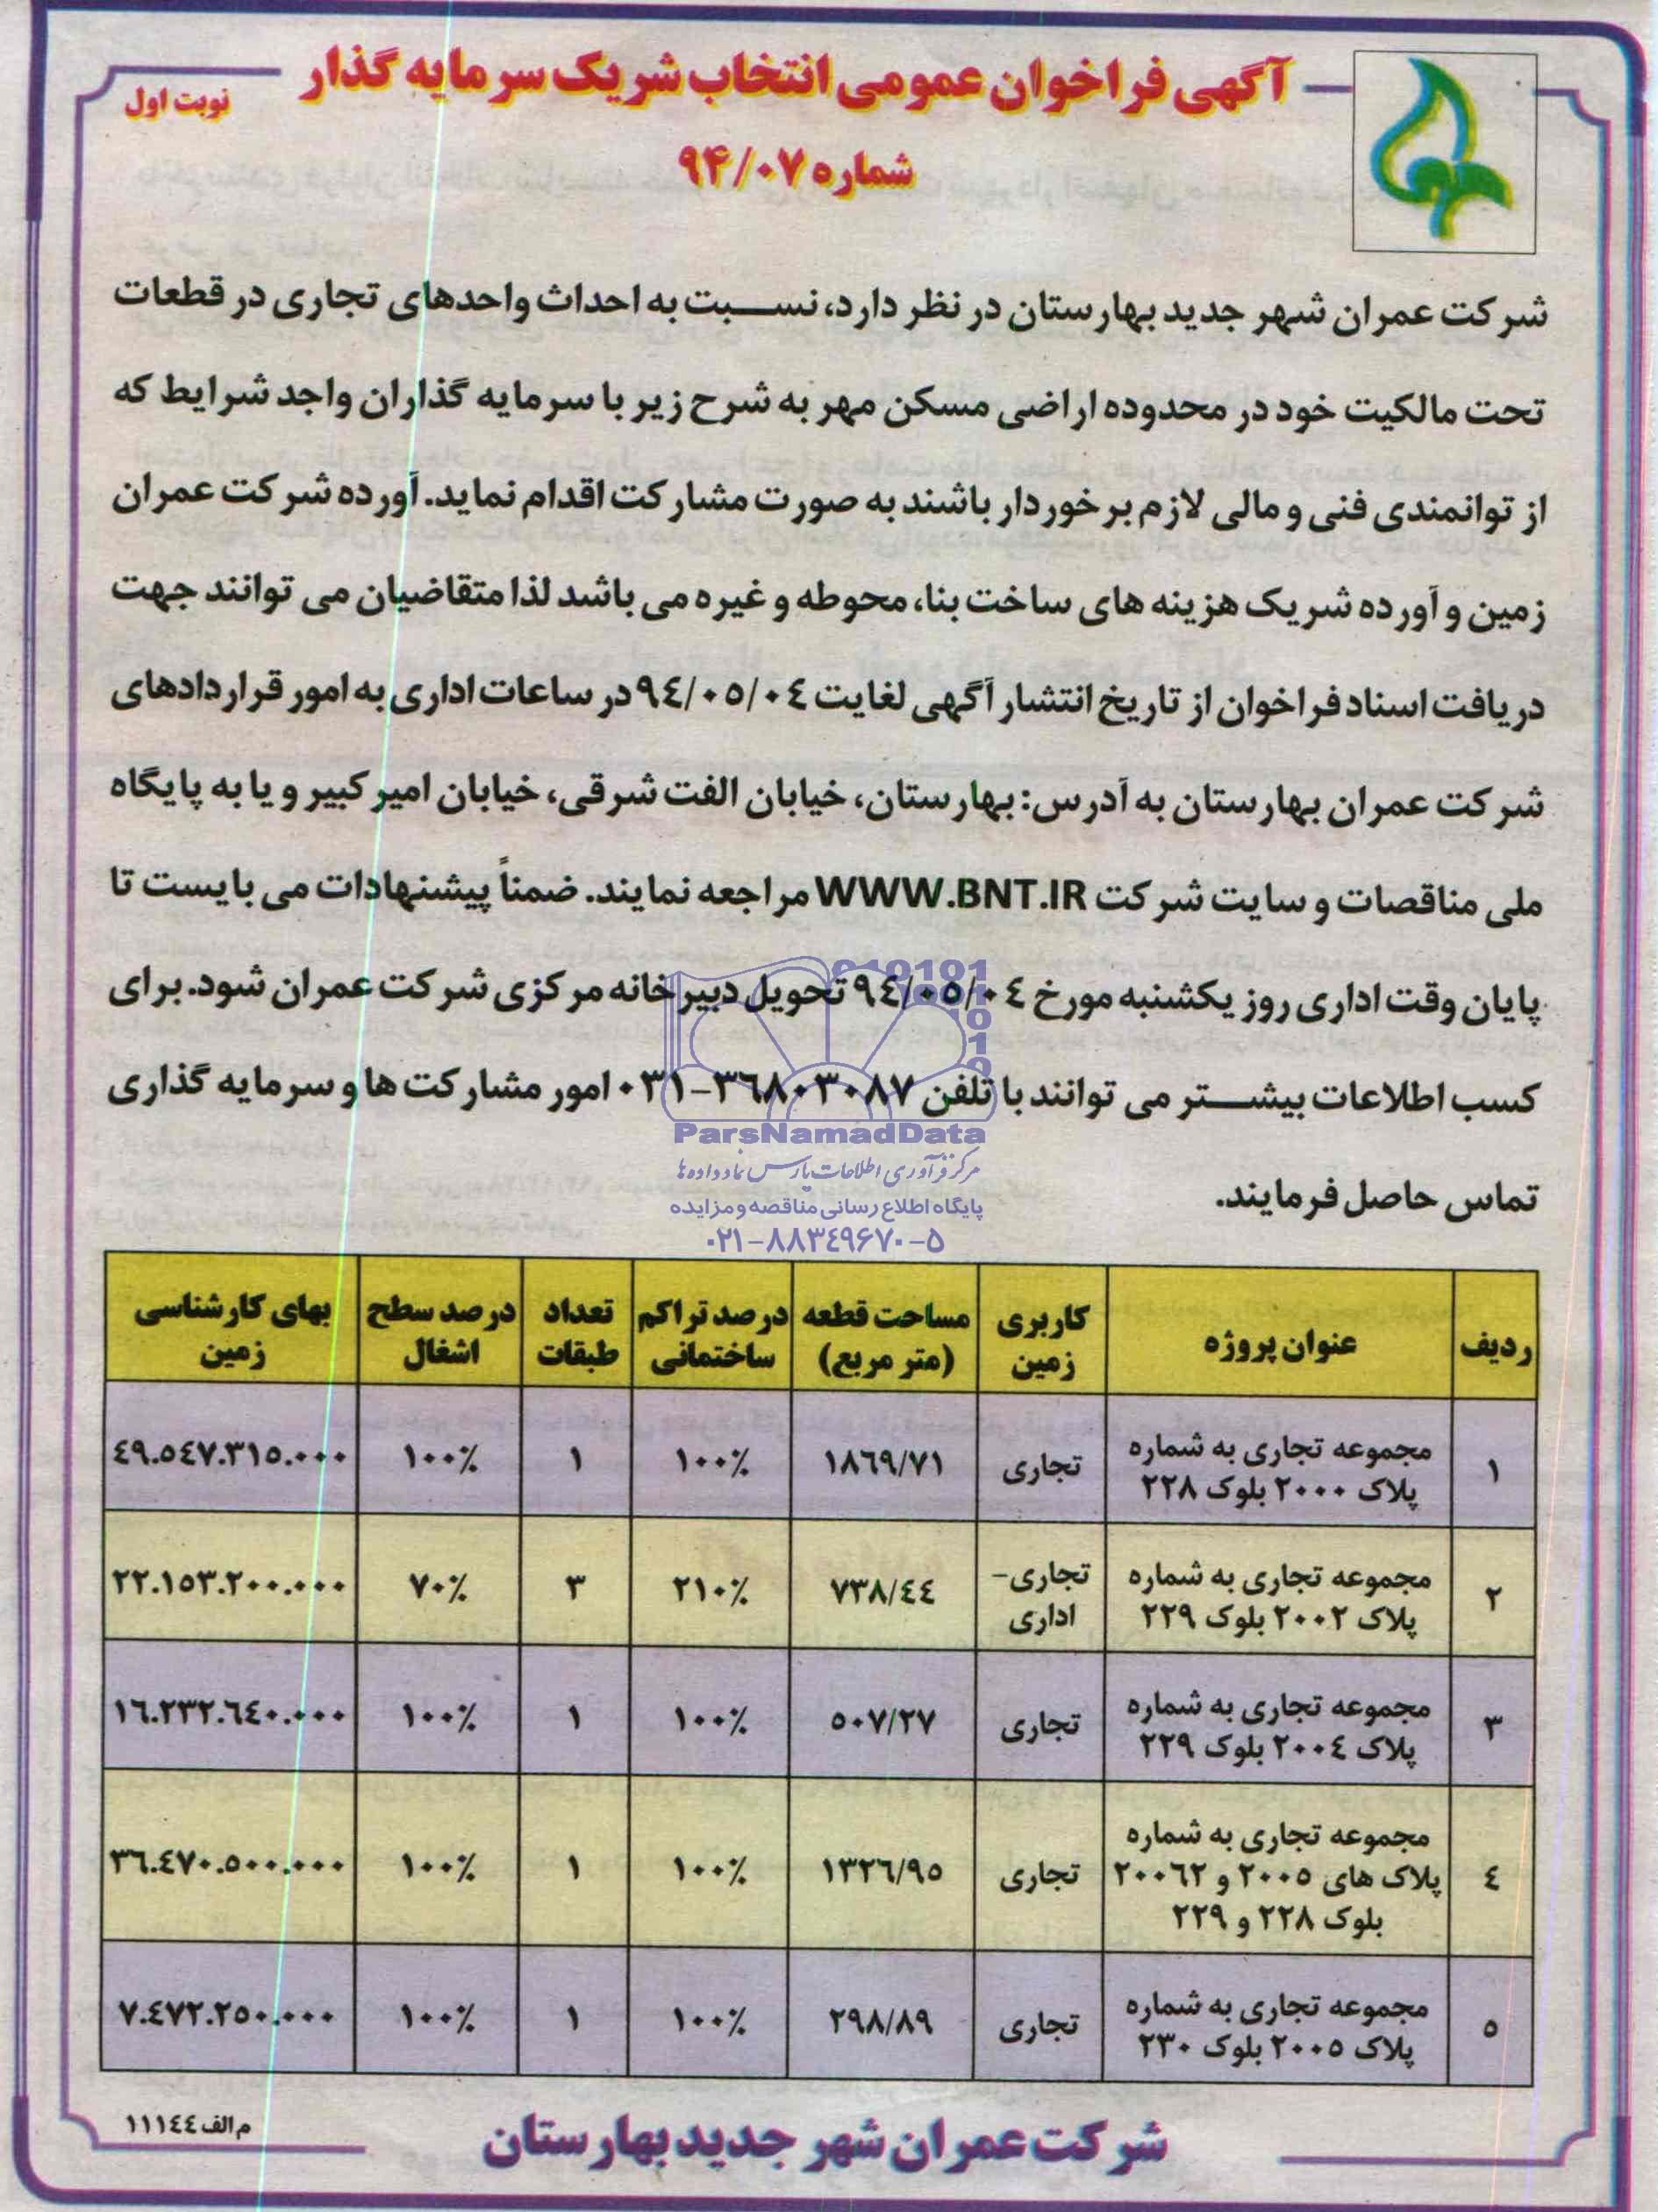 آگهی فراخوان عمومی انتخاب شریک سرمایه گذار
نوبت اول
شماره ۹۴/۰۷
شرکت عمران شهر جدید بهارستان در نظر دارد، نسبت به احداث واحدهای تجاری در قطعات
تحت مالکیت خود در محدوده اراضی مسکن مهر به شرح زیر با سرمایه گذاران واجد شرایط که
از توانمندی فنی و مالی لازم برخوردار باشند به صورت مشارکت اقدام نماید. آورده شرکت عمران
زمین و آورده شریک هزینه های ساخت بنا، محوطه و غیره می باشد لذا متقاضیان می توانند جهت
دریافت اسناد فراخوان از تاریخ انتشار آگهی لغایت ۹٤/۰٥/۰٤ در ساعات اداری به امور قراردادهای
شرکت عمران بهارستان به آدرس: بهارستان، خیابان الفت شرقی، خیابان امیر کبیر و یا به پایگاه
ملی مناقصات و سایت شرکت WWW.BNT.IR مراجعه نمایند. ضمناً پیشنهادات می بایست تا
پایان وقت اداری روز یکشنبه مورخ ۹٤/۰٥/۰٤ تحویل دبیرخانه مرکزی شرکت عمران شود. برای
کسب اطلاعات بیشتر می توانند با تلفن ۳٦۸۰۳۰۸۷-۰۳۱ امور مشارکت ها و سرمایه گذاری
تماس حاصل فرمایند.
ParsNamadData
مرکز فرآوری اطلاعات پارس نماد داده ها
پایگاه اطلاع رسانی مناقصه و مزایده
۰۲۱-۸۸۳۴۹۶۷۰-۵
ردیف عنوان پروژه کاربری زمین مساحت قطعه (متر مربع) درصد تراکم ساختمانی تعداد طبقات درصد سطح اشغال بهای کارشناسی زمین
۱ مجموعه تجاری به شماره پلاک ۲۰۰۰ بلوک ۲۲۸ تجاری ۱۸٦۹/۷۱ ۱۰۰٪ ۱ ۱۰۰٪ ٤۹.٥٤۷.۳۱٥.۰۰۰
۲ مجموعه تجاری به شماره پلاک ۲۰۰۲ بلوک ۲۲۹ تجاری- اداری ۷۳۸/٤٤ ۲۱۰٪ ۳ ۷۰٪ ۲۲.۱٥۳.۲۰۰.۰۰۰
۳ مجموعه تجاری به شماره پلاک ۲۰۰٤ بلوک ۲۲۹ تجاری ٥۰۷/۲۷ ۱۰۰٪ ۱ ۱۰۰٪ ۱٦.۲۳۲.٦٤۰.۰۰۰
٤ مجموعه تجاری به شماره پلاک های ۲۰۰٥ و ۲۰۰٦۲ بلوک ۲۲۸ و ۲۲۹ تجاری ۱۳۲٦/۹٥ ۱۰۰٪ ۱ ۱۰۰٪ ۳٦.٤۷۰.٥۰۰.۰۰۰
٥ مجموعه تجاری به شماره پلاک ۲۰۰٥ بلوک ۲۳۰ تجاری ۲۹۸/۸۹ ۱۰۰٪ ۱ ۱۰۰٪ ۷.٤۷۲.۲٥۰.۰۰۰
شرکت عمران شهر جدید بهارستان
م الف ۱۱۱٤٤